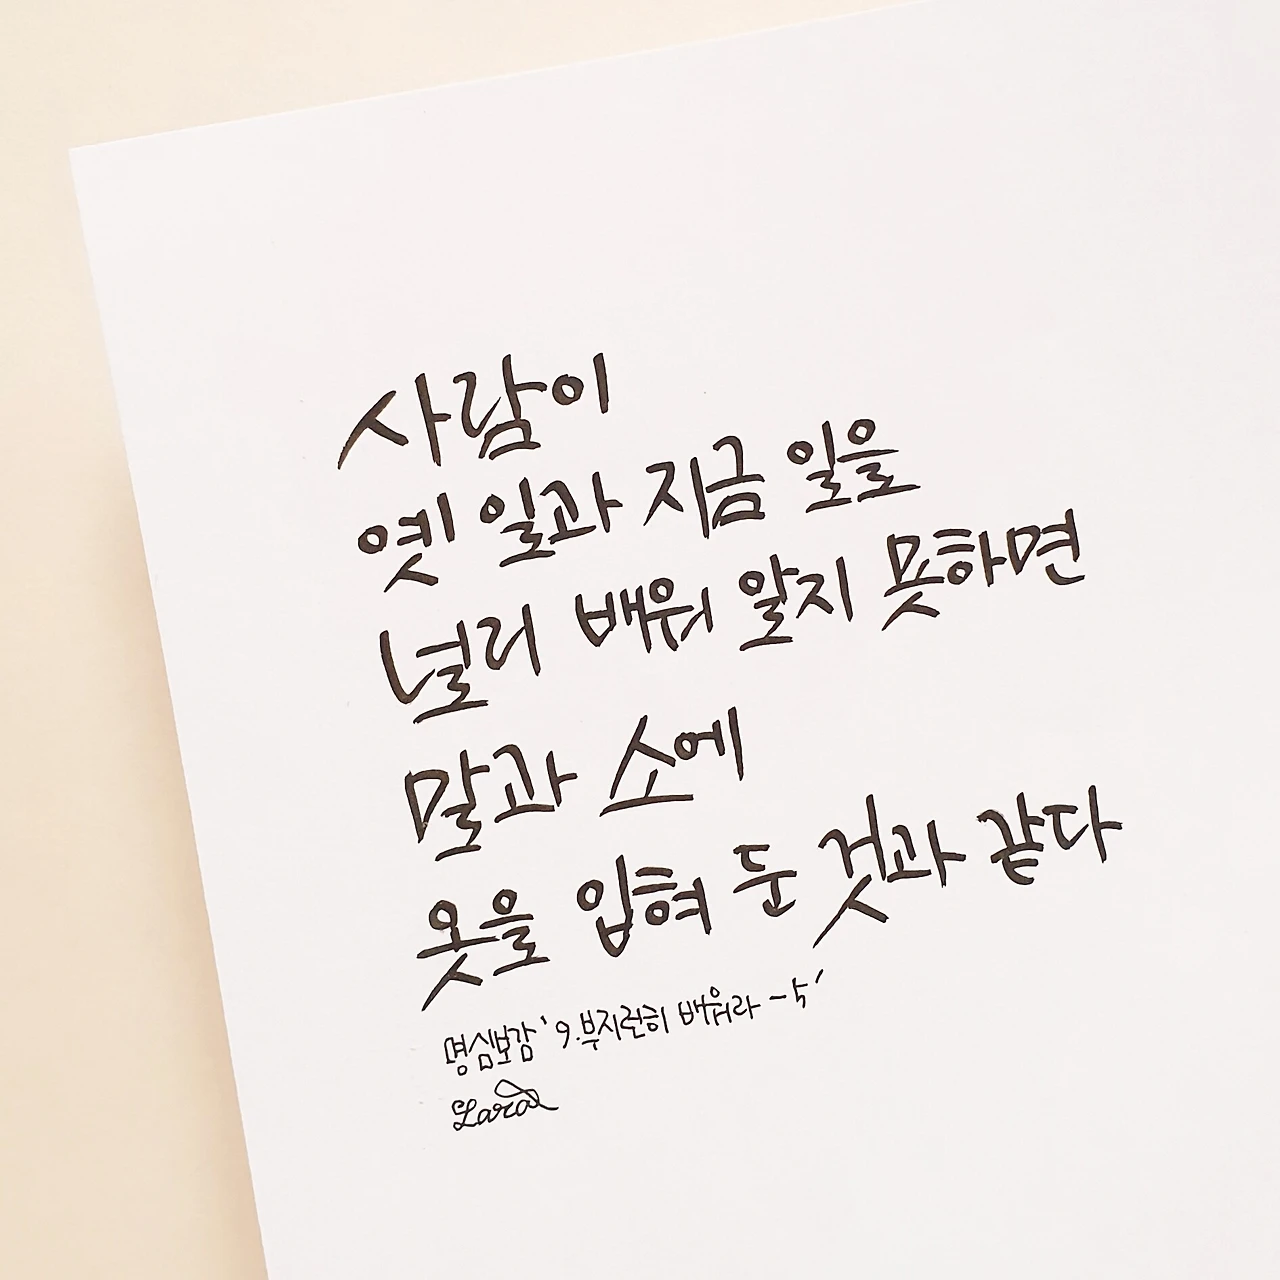 사람이
옛 일과 지금 일을
널리 배워 알지 못하면
말과 소에
옷을 입혀 둔 것과 같다
명심보감 '9.부지런히 배워라 - 5'
Lara